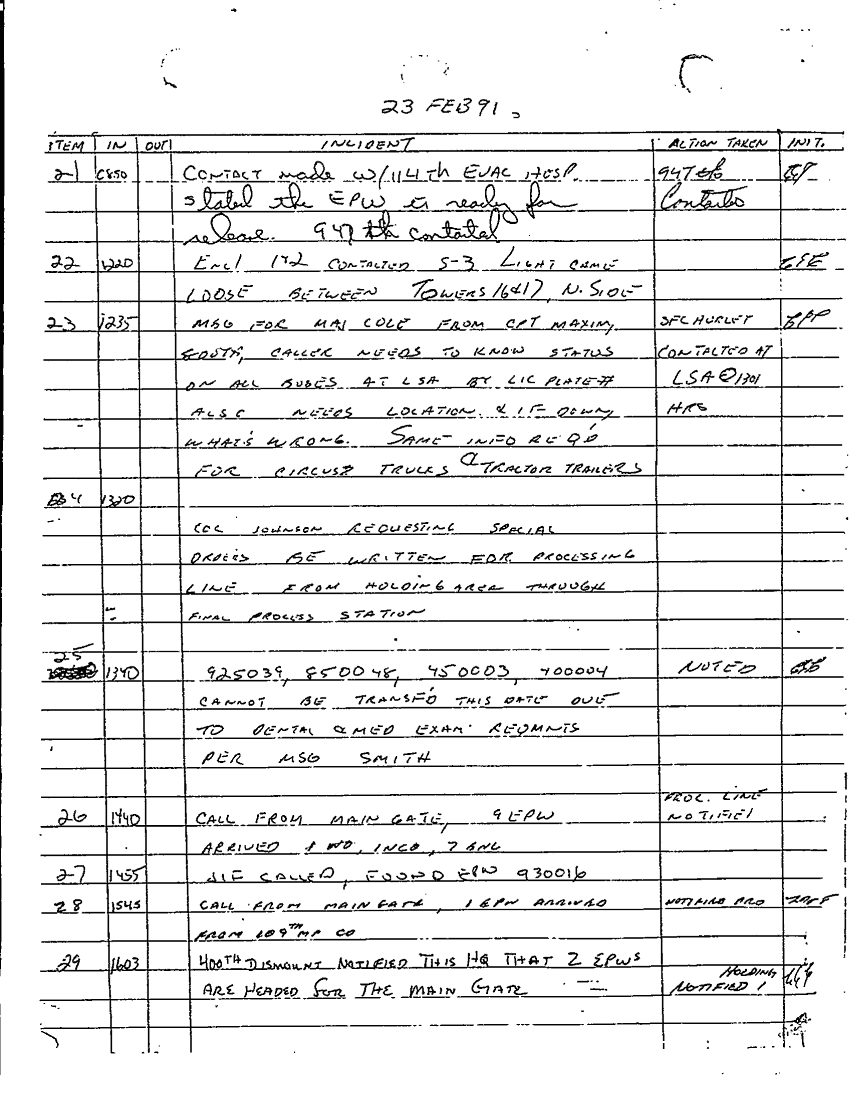 23 FEB 91
ITEM IN OUT INCIDENT ACTION TAKEN INIT.
21 0850 CONTACT made w/114th EVAC HOSP. 947th
stated the EPW is ready for Contacted
release. 947th contacted
22 1220 Encl 1&2 CONTACTED S-3 LIGHT CAME
LOOSE BETWEEN TOWERS 16&17, N. SIDE
23 1235 MSG FOR MAJ COLE FROM CPT MAXIM, SFC HURLEY
CALLER NEEDS TO KNOW STATUS CONTACTED AT
ON ALL BUSES AT LSA BY LIC PLATE # LSA @ 1301
ALSO NEEDS LOCATION & IF DOWN, HRS
WHAT'S WRONG. SAME INFO REQ'D
FOR TRUCKS & TRACTOR TRAILERS
1320
COL JOHNSON REQUESTING SPECIAL
ORDERS BE WRITTEN FOR PROCESSING
LINE FROM HOLDING AREA THROUGH
FINAL PROCESS STATION
25
1340 925039, 850048, 450003, 700004 NOTED
CANNOT BE TRANSF'D THIS DATE DUE
TO DENTAL & MED EXAM REQMNTS
PER MSG SMITH
PROC. LINE
26 1440 CALL FROM MAIN GATE, 9 EPW NOTIFIED
ARRIVED 1 WO, 1 NCO, 7 ENL
27 1455 JIF CALLED, FOUND EPW 930016
28 1545 CALL FROM MAIN GATE, 1 EPW ARRIVED NOTIFIED PRO
FROM 109TH MP CO
29 1603 400TH DISMOUNT NOTIFIED THIS HQ THAT 2 EPWS HOLDING
ARE HEADED FOR THE MAIN GATE NOTIFIED